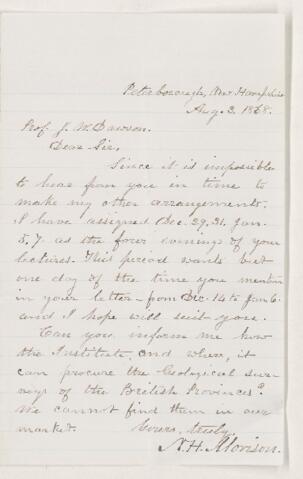 Peterborough, New Hampshire
Aug. 3. 1868.
Prof. J. W. Dawson.
Dear Sir,
Since it is impossible
to hear from you in time to
make my other arrangements,
I have assigned Dec. 29, 31, Jan.
5, 7, as the four evenings of your
lectures. This period wants but
one day of the time you mention
in your letter – from Dec. 14 to Jan. 6.
and I hope will suit you.
Can you inform me how
the Institute, and where, it
can procure the Geological sur-
veys of the British Provinces?
We cannot find them in our
market.
Yours, truly,
N. H. Morison.